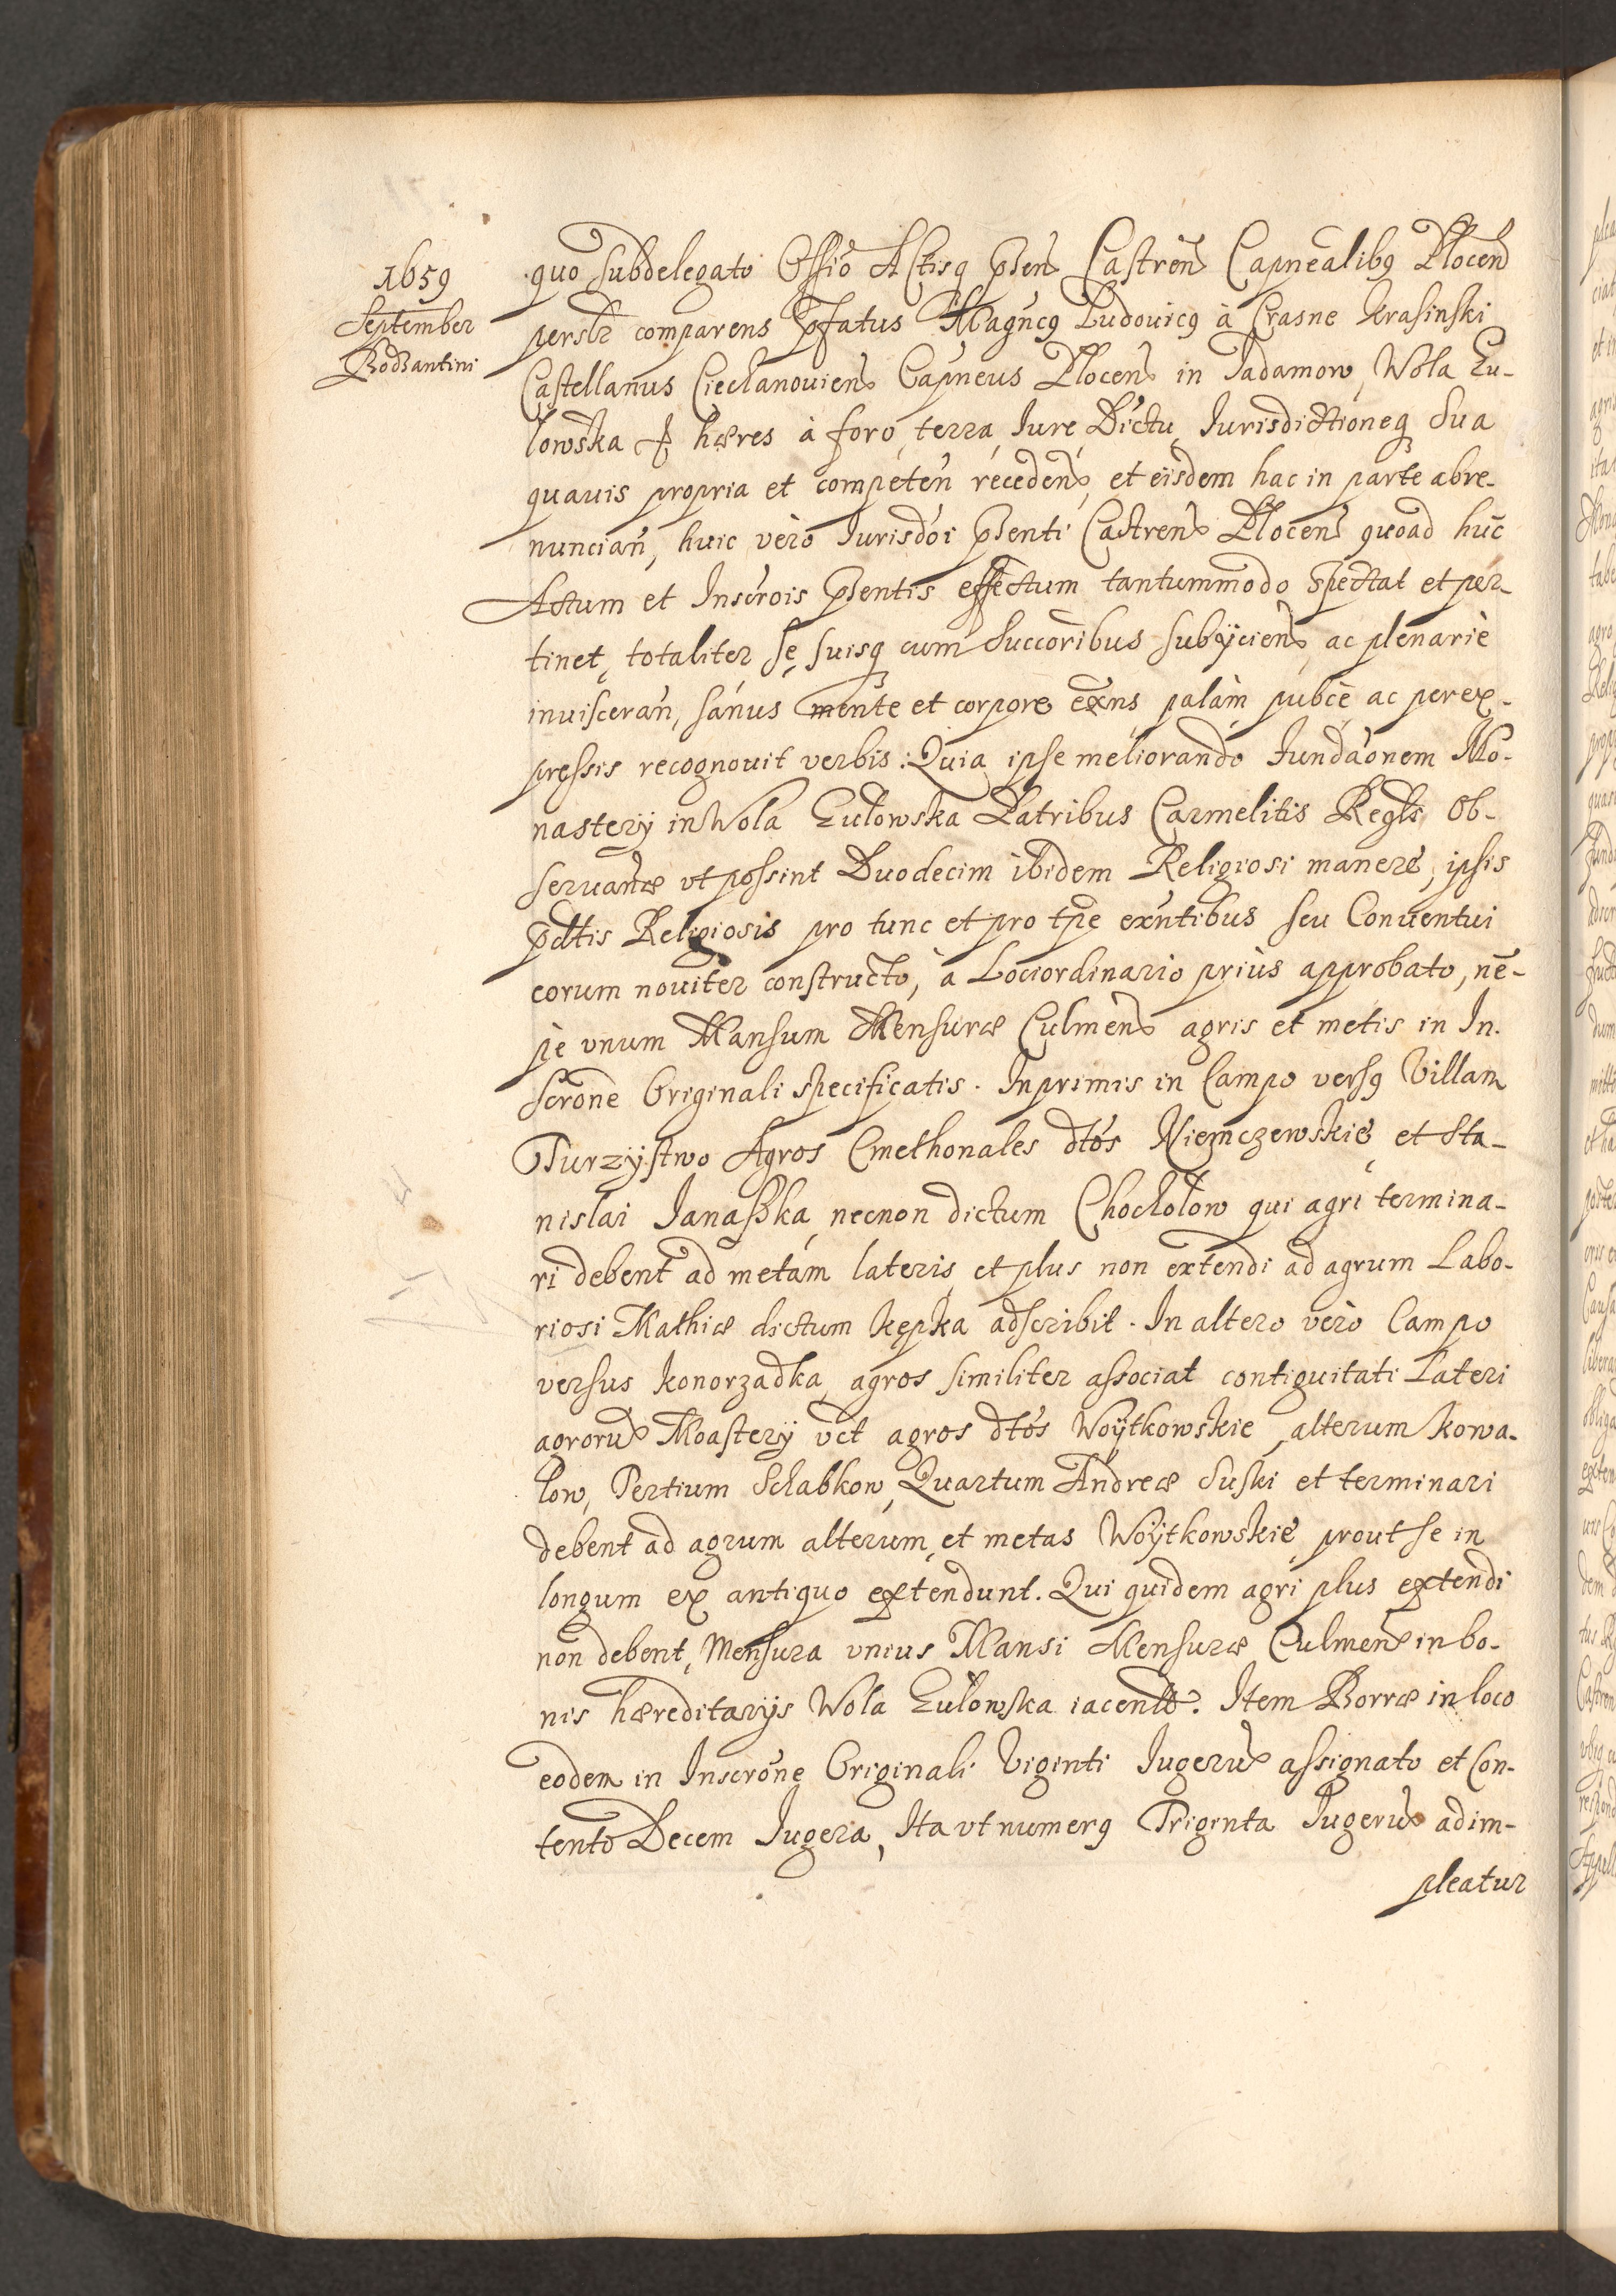 1659
September
Bodzantini
quo subdelegato Offio Actisq pñen Castren Capnealibq Plocen
persłr comparens pfatus Magncq Ludouicq à Crasne Krasinski
Castellanus Ciechanouien Capneus Plocen in Jadamow, Wola Łu-
łowska & hæres à foro, terra, Iure Dictu, Iurisdictioneq Sua
quauis propria et competen receden, et eisdem hac in parte abre-
nuncian, huic vèro Iurisdoi pñenti Castren Plocen quoad huc
Actum et Inscrois pñentis effectum tantummodo spectat et per-
tinet, totaliter se, suisq cum Succoribus subÿcien, ac plenariè
inuisceran, sanus mente et corpore exns palàm pubcè ac perex-
pressis recognouit verbis: Quia ipse meliorando Fundaonem Mo-
nasterÿ in Wola Łułowska Patribus Carmelitis Regłr Ob-
seruanæ vt possint Duodecim ibidem Religiosi manere, ipsis
pdtis Religiosis pro tunc et pro tpe exntibus seu Conuentui
eorum nouiter constructo, à Lociordinario priùs approbato, nē-
pè vnum Mansum Mensuræ Culmen agris et metis in In-
scrone Originali specificatis. Inprimis in Campo versq Villam
Turzÿstwo Agros Cmethonales dtos Niemczewskie, et Sta-
nislai Janaszka, necnon dictum Chochołow qui agri termina-
ri debent ad metam lateris, et plus non extendi ad agrum Labo-
riosi Mathiæ dictum Kępka adscribit. In altero vèro Campo
versus Konorzadka, agros similiter associat contiguitati Lateri
agroru Moasterÿ vct agros dtos Woÿtkowskie, alterum Kowa-
low, Tertium Schabkow, Quartum Andreæ Suski et terminari
debent ad agrum alterum, et metas Woÿtkowskie, prout se in
longum ex antiquo extendunt. Qui quidem agri plus extendi
non debent, Mensura vnius Mansi Mensuræ Culmen in bo-
nis hæreditarÿs Wola Łułowska iacente. Item Borræ in loco
eodem in Inscrone Originali Viginti Iugeru assignato et Con-
tento Decem Iugera, Ita vt numerq Triginta Iugeru adim-
pleatur